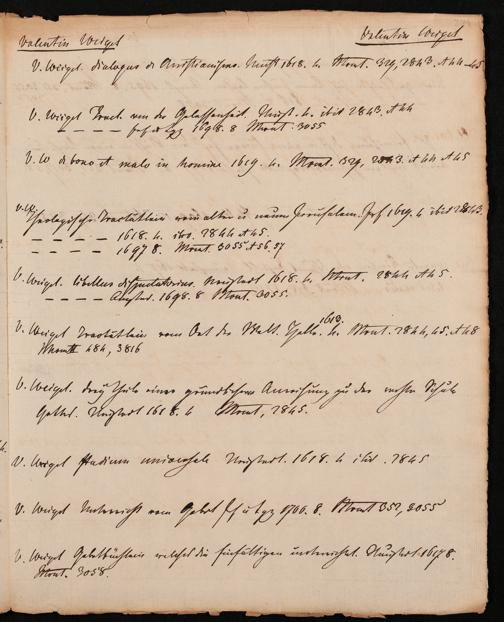 Valentin Weigel
Valentin Weigel
V. Weigel. dialogus de Christianismo. Neust 1618. 4. Mont. 329, 2843. 44-45
V. Weigel Tract. von der Gelassenheit. Neust. 4. ibid 2843, 44
— — — — 1698. 8 Mont. 3055
V. W de bono et malo in homine 1619. 4. Mont. 329, 2843. 44 45
V. W. Theologische Tractätlein vom alten u neuen Jerusalem. 1619. 4 ibid 2843.
— — — — 1618. 4. ibid. 2844 45.
— — — — 1697 8. Mont. 3055 56. 57
V. Weigel. libellus disputatorius. Neustadt 1618. 4. Mont. 2844 45.
— — — — 1698. 8 Mont. 3055.
V. Weigel Tractätlein vom Ort der Welt. Halle. 1613. 4. Mont. 2844, 45. 48
484, 3816
V. Weigel. drey Theile einer gründlichen Anweisung zu der rechten Schule
Gottes. Neustadt 1618. 4 Mont, 2845.
V. Weigel Studium universale Neustadt. 1618. 4 ibid. 2845
V. Weigel Unterricht vom Gebet 1700. 8. Mont 352, 3055
V. Weigel Gebetbüchlein welches die Einfältigen unterrichtet. Neustadt 1698.
Mont. 3058.